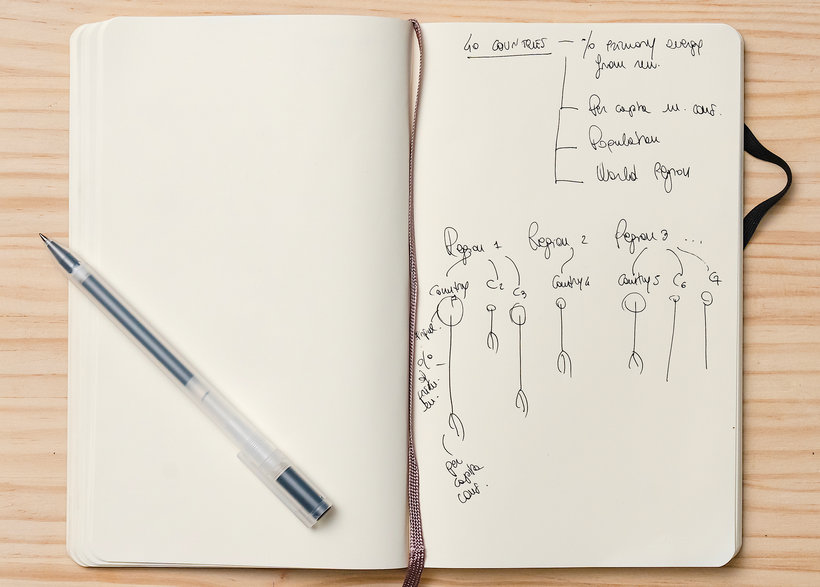 40 COUNTRIES — % primary energy
from ren.
Per capita en. cons.
Population
World Region
Region 1 Region 2 Region 3 ...
Country 1 C2 C3 Country 4 Country 5 C6 C7
% of
Per
capita
cons.